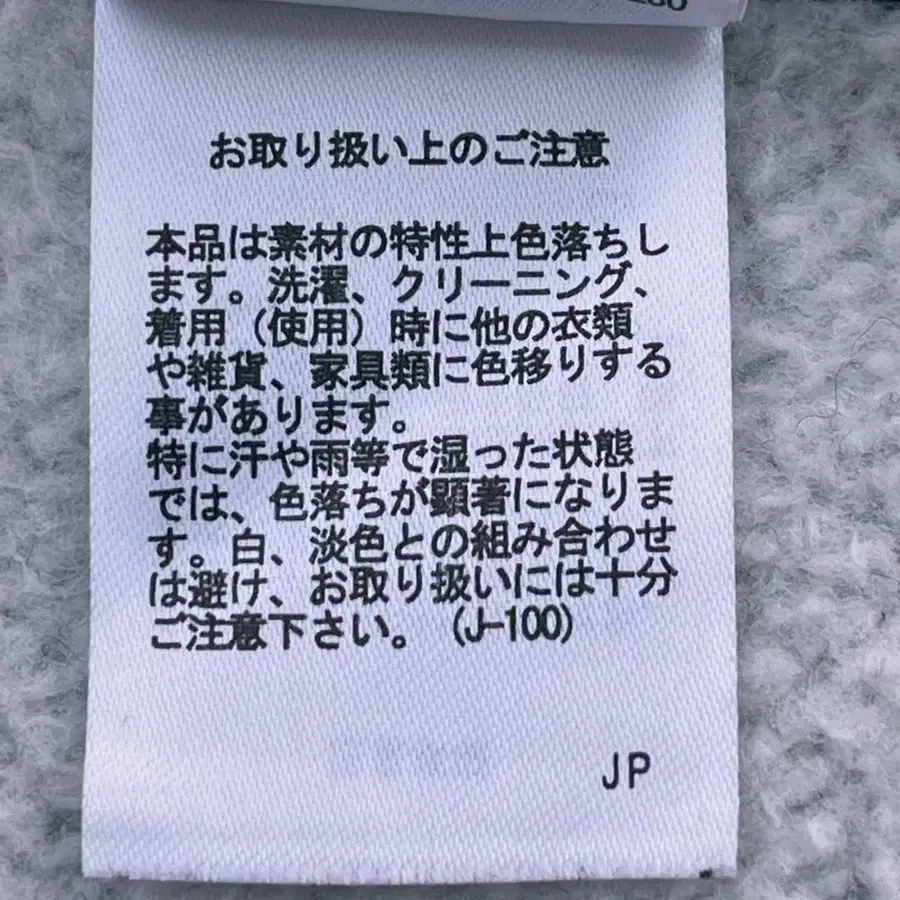 お取り扱い上のご注意
本品は素材の特性上色落ちし
ます。洗濯、クリーニング、
着用（使用）時に他の衣類
や雑貨、家具類に色移りする
事があります。
特に汗や雨等で湿った状態
では、色落ちが顕著になりま
す。白、淡色との組み合わせ
は避け、お取り扱いには十分
ご注意下さい。（J-100）
JP